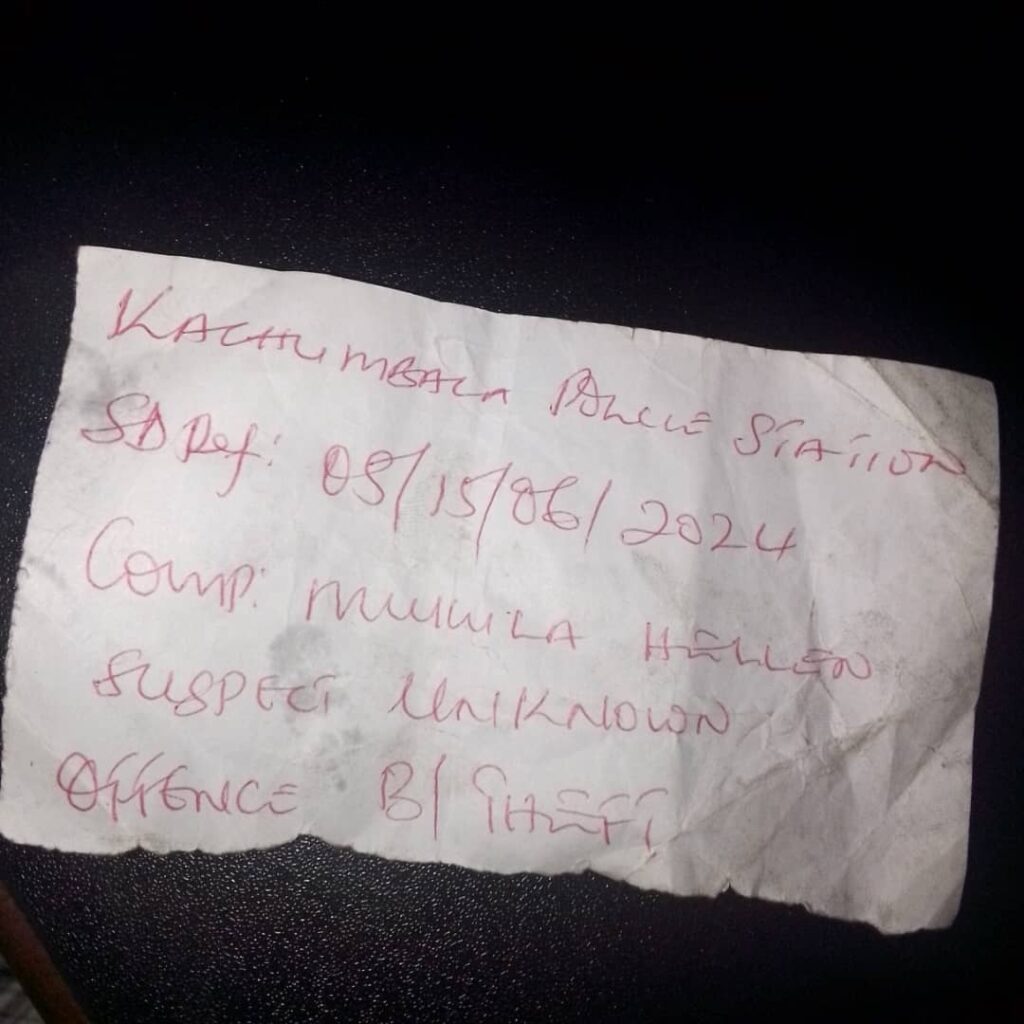 KACHUMBALA POLICE STATION
SD Ref: 05/15/06/2024
Comp: HELLEN
SUSPECT UNKNOWN
OFFENCE B/THEFT